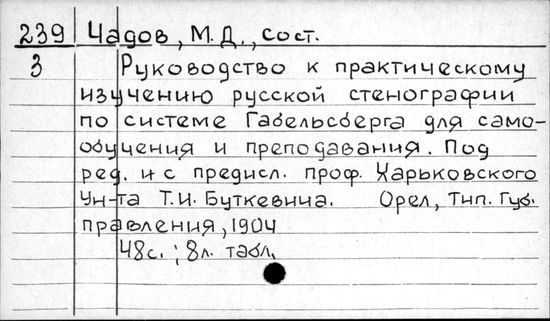 239 Чадов, М.Д., сост.
3 Руководство к практическому
изучению русской стенографии
по системе Габельсберга для само-
обучения и преподавания. Под
ред. и с предисл. проф. Харьковского
Ун-та Т.И. Буткевича. Орел, Тип. Губ.
правления, 1904
48с.; 8л. табл.